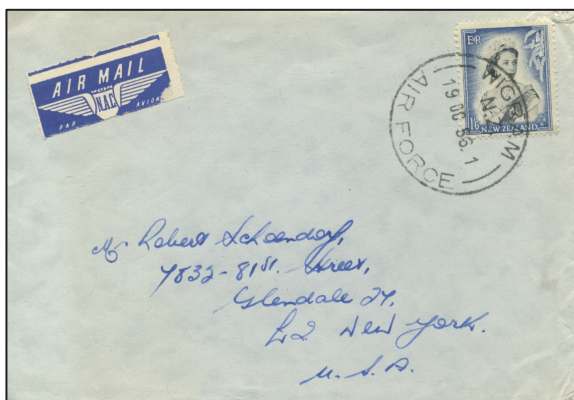 AIR MAIL
N.A.C.
PAR AVION
E R
1/6 NEW ZEALAND
WIGRAM
N.Z.
19 OC 56. 1
AIR FORCE
Mr Robert Schoendorf,
7832-81st. Street,
Glendale 27,
L.I. New York.
U.S.A.